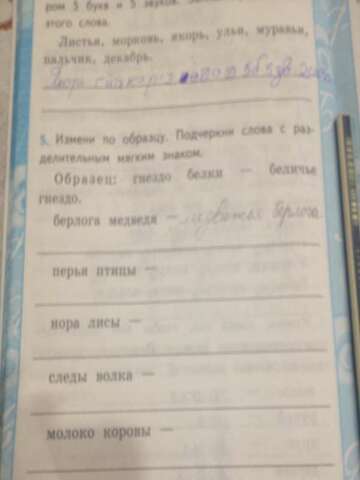 ром 5 букв и 5 звуков.
этого слова.
Листья, морковь, якорь, ульи, муравьи,
пальчик, декабрь.
5. Измени по образцу. Подчеркни слова с раз-
делительным мягким знаком.
Образец: гнездо белки — беличье
гнездо.
берлога медведя — медвежья берлога
перья птицы —
нора лисы —
следы волка —
молоко коровы —